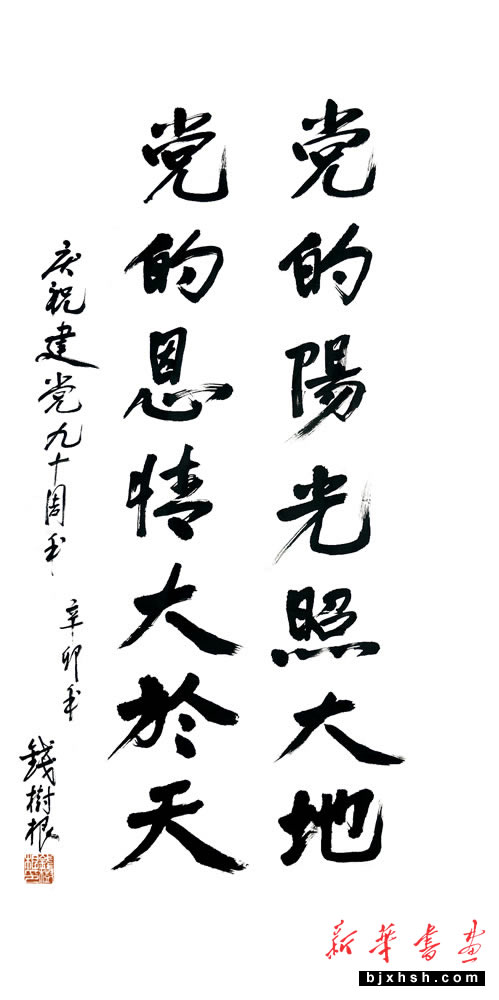 党的陽光照大地
党的恩情大於天
庆祝建党九十周年
辛卯年
錢樹根
新華書画
bjxhsh.com